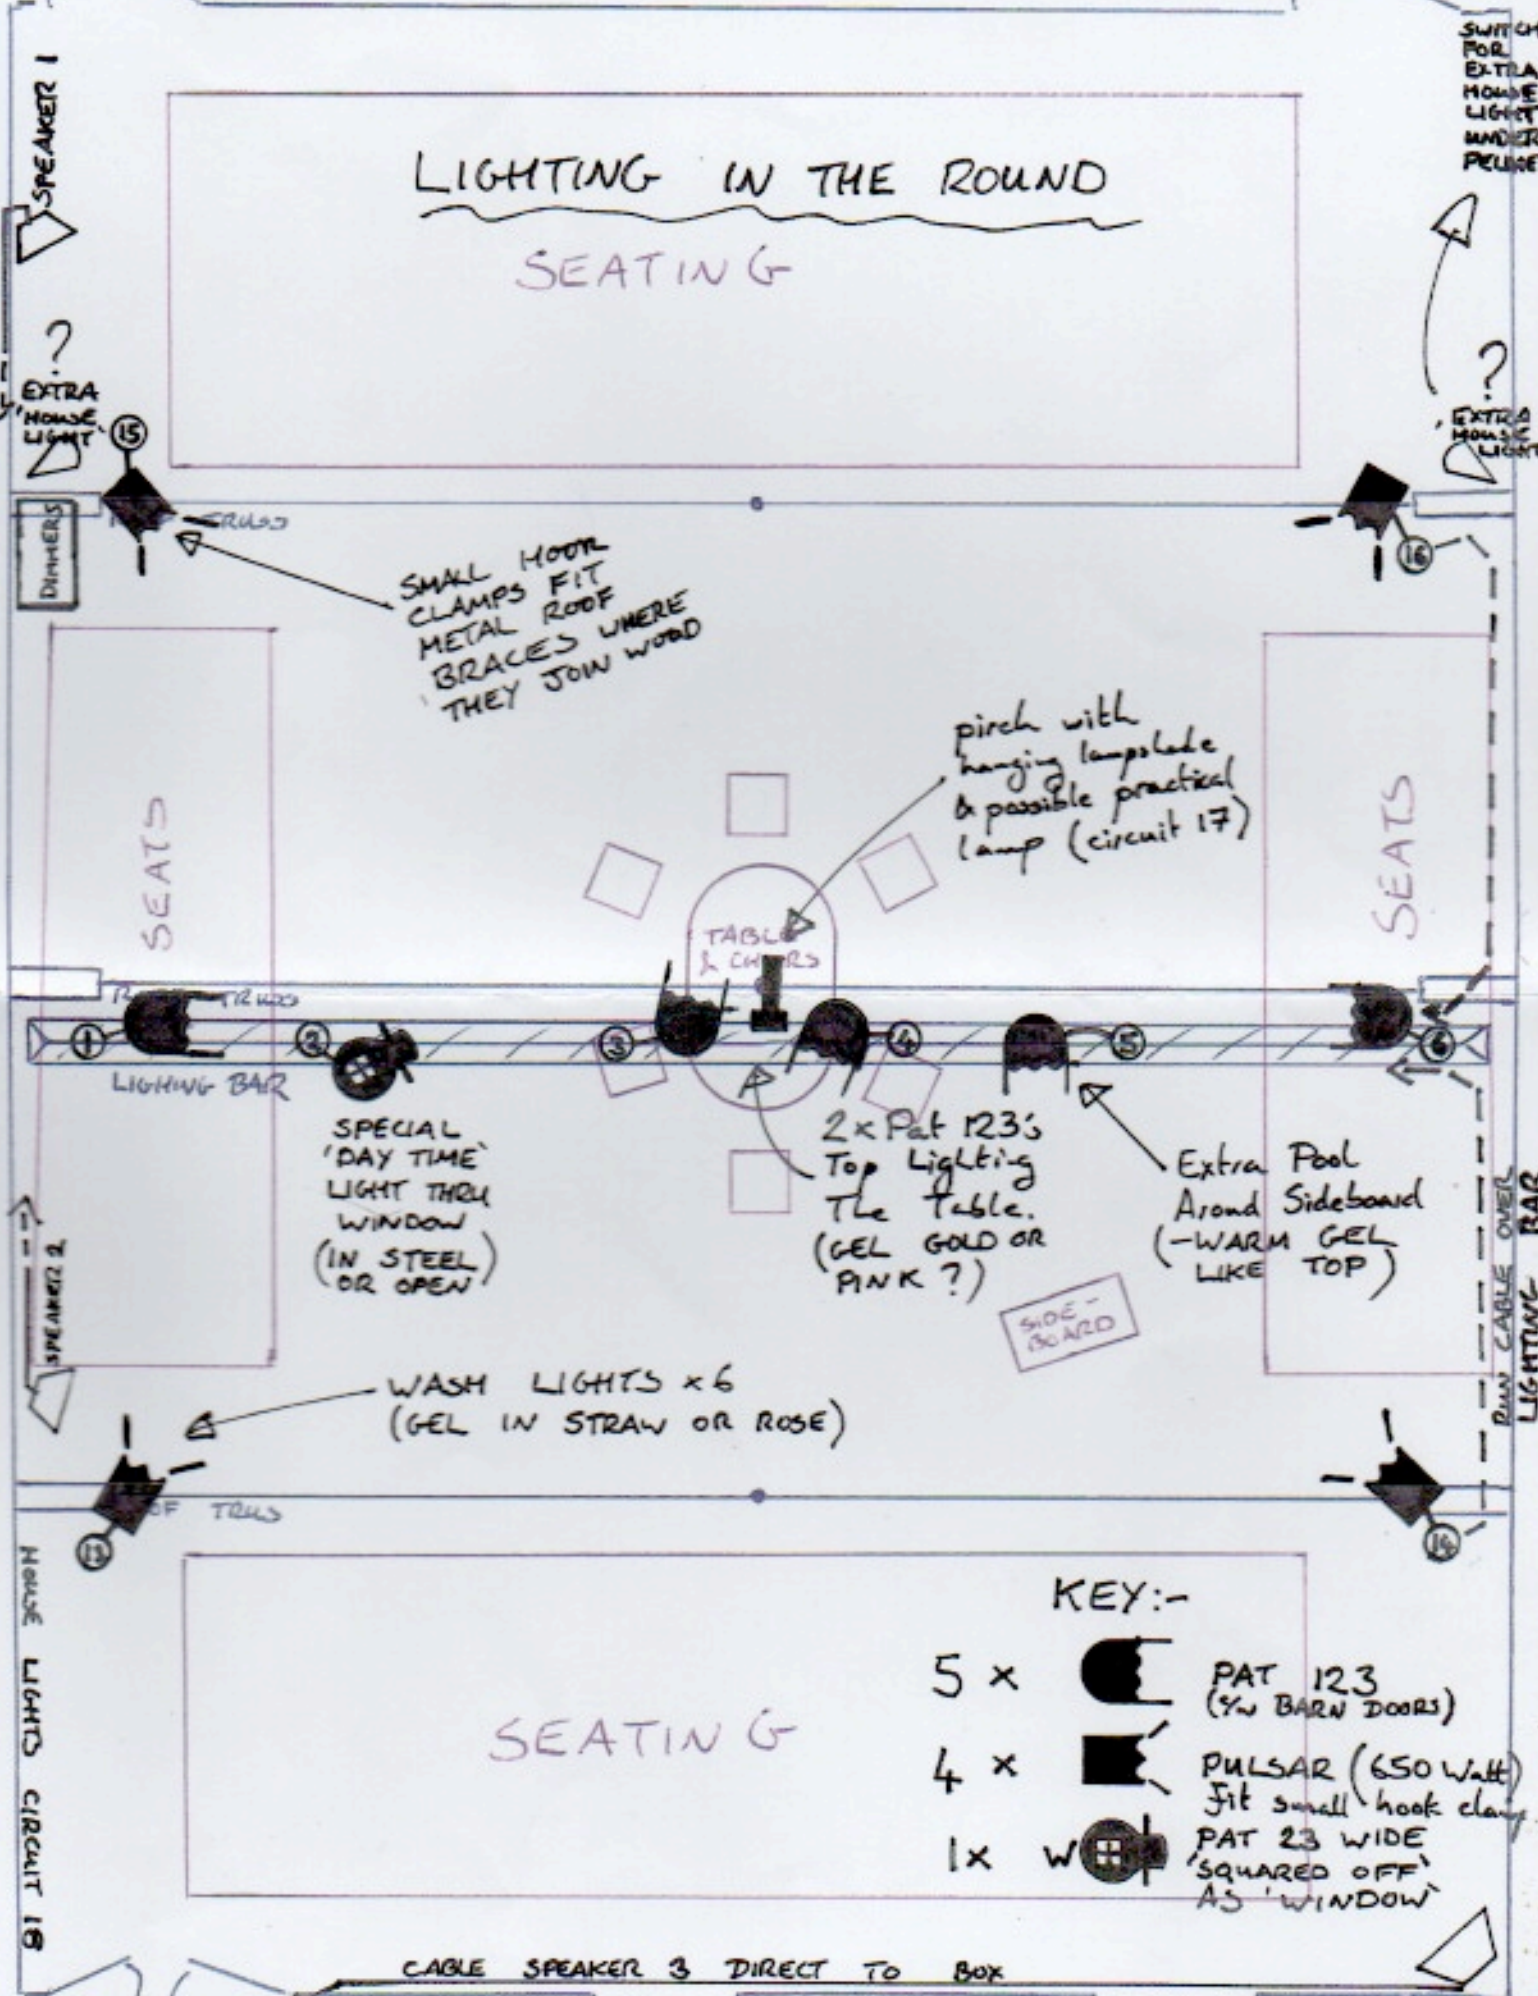 SPEAKER 1
SWITCH
FOR
EXTRA
HOUSE
LIGHT
UNDER
LIGHTING IN THE ROUND
SEATING
?
EXTRA
'HOUSE
LIGHT'
15
?
'EXTRA
HOUSE
LIGHT
DIMMERS
TRUSS
16
SMALL HOOK
CLAMPS FIT
METAL ROOF
BRACES WHERE
THEY JOIN WOOD
pirch with
hanging lampshade
& possible practical
lamp (circuit 17)
SEATS
SEATS
TABLE
& CHAIRS
TRUSS
1
2
3
4
5
6
LIGHING BAR
SPECIAL
'DAY TIME'
LIGHT THRU
WINDOW
(IN STEEL)
OR OPEN
2 x Pat 123's
Top Lighting
The Table.
(GEL GOLD OR
PINK ?)
Extra Pool
Around Sideboard
(-WARM GEL
LIKE TOP)
SIDE-
BOARD
SPEAKER 2
RUN CABLE OVER
LIGHTING BAR
WASH LIGHTS x 6
(GEL IN STRAW OR ROSE)
OF TRUS
13
14
HOUSE LIGHTS CIRCUIT 18
KEY:-
5 x PAT 123
(c/w BARN DOORS)
SEATING
4 x PULSAR (650 Watt)
Fit small hook clamp
1x W PAT 23 WIDE
'SQUARED OFF'
AS 'WINDOW'
CABLE SPEAKER 3 DIRECT TO BOX